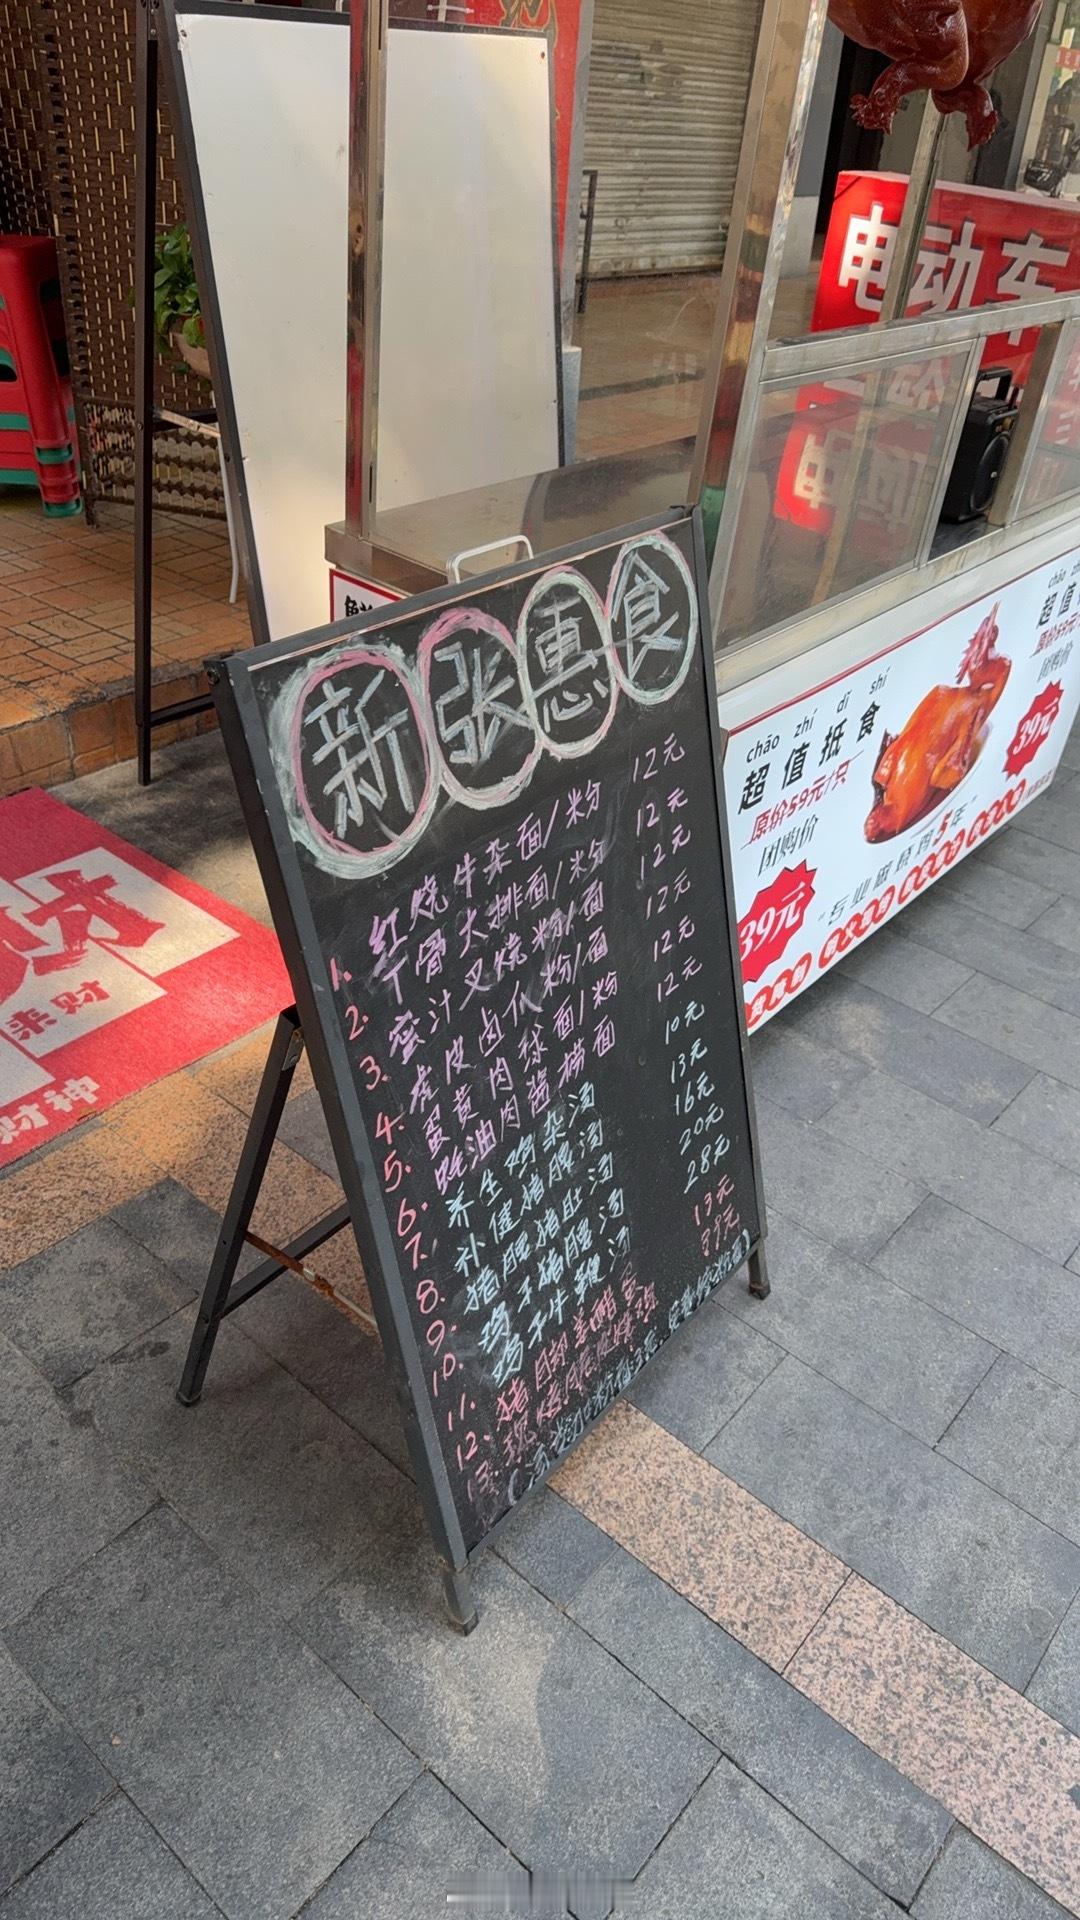 新张惠食
1. 红烧牛杂面/粉 12元
2. 干骨大排面/粉 12元
3. 蜜汁叉烧粉/面 12元
4. 虎皮卤爪粉/面 12元
5. 蛋黄肉球面/粉 12元
6. 蚝油肉酱捞面 12元
7. 养生鸡杂汤 10元
8. 补健猪腰汤 13元
9. 猪腰猪肚汤 16元
10. 鸡子猪腰汤 20元
11. 鸡子牛鞭汤 28元
12. 猪脚姜醋蛋 13元
13. 现烤脆皮烧鸡 39元
电动车
chāo zhí dǐ shí
超值抵食
原价59元/只
团购价
39元
"专业做烧鸡5年"
chāo
超值
原价59元
团购价
39元
财
来财
财神